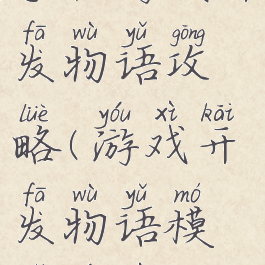 fā wù yǔ gōng
发物语攻
lüè yóu xì kāi
略(游戏开
fā wù yǔ mó
发物语模